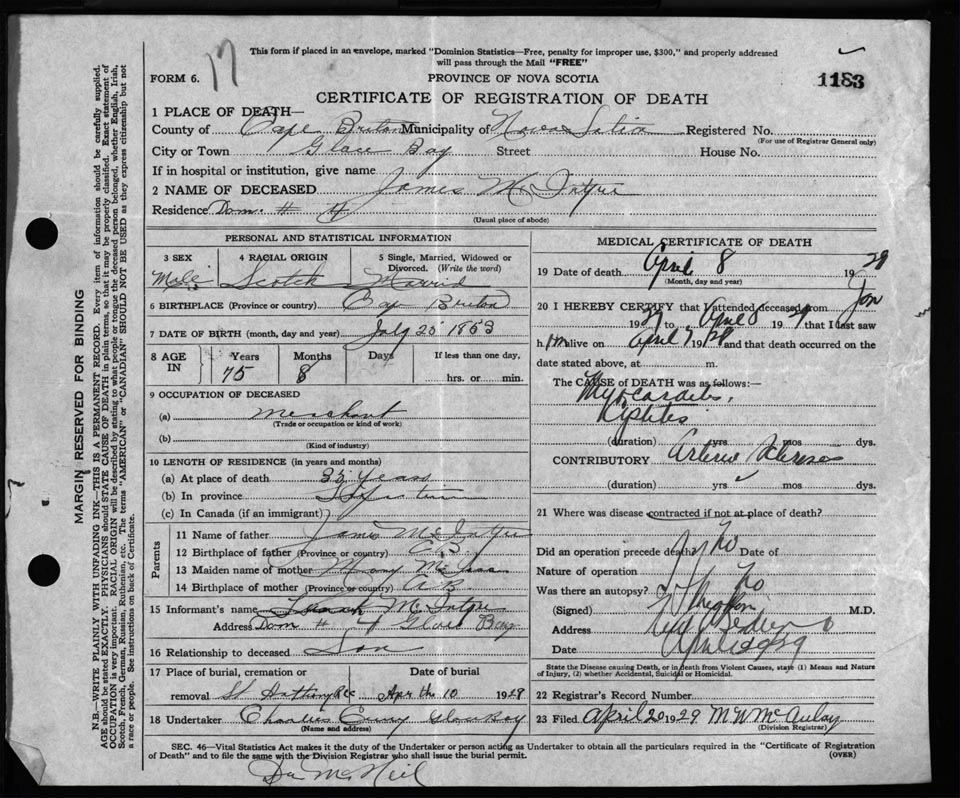 This form if placed in an envelope, marked "Dominion Statistics—Free, penalty for improper use, $300," and properly addressed
will pass through the Mail "FREE"
17
FORM 6.
PROVINCE OF NOVA SCOTIA
1183
CERTIFICATE OF REGISTRATION OF DEATH
1 PLACE OF DEATH—
County of Cape Breton Municipality of Nova Scotia Registered No.
(For use of Registrar General only)
City or Town Glace Bay Street House No.
If in hospital or institution, give name
2 NAME OF DECEASED James McIntyre
Residence Dom. # 4
(Usual place of abode)
PERSONAL AND STATISTICAL INFORMATION
3 SEX 4 RACIAL ORIGIN 5 Single, Married, Widowed or
Divorced. (Write the word)
Male Scotch Married
6 BIRTHPLACE (Province or country) Cap Breton
7 DATE OF BIRTH (month, day and year) July 25 1853
8 AGE IN Years Months Days If less than one day,
75 8 hrs. or min.
9 OCCUPATION OF DECEASED
(a) Merchant
(Trade or occupation or kind of work)
(b)
(Kind of industry)
10 LENGTH OF RESIDENCE (in years and months)
(a) At place of death 35 years
(b) In province
(c) In Canada (if an immigrant)
Parents
11 Name of father James McIntyre
12 Birthplace of father (Province or country) C.B.
13 Maiden name of mother Mary
14 Birthplace of mother (Province or country) C B
15 Informant's name McIntyre
Address Dom # 4 Glace Bay
16 Relationship to deceased Son
17 Place of burial, cremation or Date of burial
removal St Anthony April 10 1929
18 Undertaker Charlies Glace Bay
(Name and address)
MEDICAL CERTIFICATE OF DEATH
19 Date of death April 8 1929
(Month, day and year)
20 I HEREBY CERTIFY that I attended deceased from Jan
1929 to April 8 1929 that I last saw
him alive on April 7 1929 and that death occurred on the
date stated above, at m.
The CAUSE of DEATH was as follows:
Myocarditis,
(duration) yrs mos dys.
CONTRIBUTORY Arterio
(duration) yrs mos dys.
21 Where was disease contracted if not at place of death?
Did an operation precede death? No Date of
Nature of operation
Was there an autopsy? No
(Signed) M.D.
Address
Date
State the Disease causing Death, or in Death from Violent Causes, state (1) Means and Nature
of Injury, (2) whether Accidental, Suicidal or Homicidal.
22 Registrar's Record Number
23 Filed April 20 1929 M W McAulay
(Division Registrar)
SEC. 46—Vital Statistics Act makes it the duty of the Undertaker or person acting as Undertaker to obtain all the particulars required in the "Certificate of Registration
of Death" and to file the same with the Division Registrar who shall issue the burial permit. (OVER)
Dr McNeil
MARGIN RESERVED FOR BINDING
N.B.—WRITE PLAINLY WITH UNFADING INK—THIS IS A PERMANENT RECORD. Every item of information should be carefully supplied.
AGE should be stated EXACTLY. PHYSICIANS should STATE CAUSE OF DEATH in plain terms, so that it may be properly classified. Exact statement of
OCCUPATION is very important. RACIAL ORIGIN will be described by stating to what people or tongue the deceased person belonged, whether English, Irish,
Scotch, French, German, Russian, Ruthenian, etc. The terms "AMERICAN" or "CANADIAN" SHOULD NOT BE USED as they express citizenship but not
a race or people. See instructions on back of Certificate.